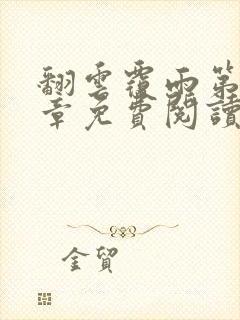 翻雲覆雨第
章免費閱讀
金貿